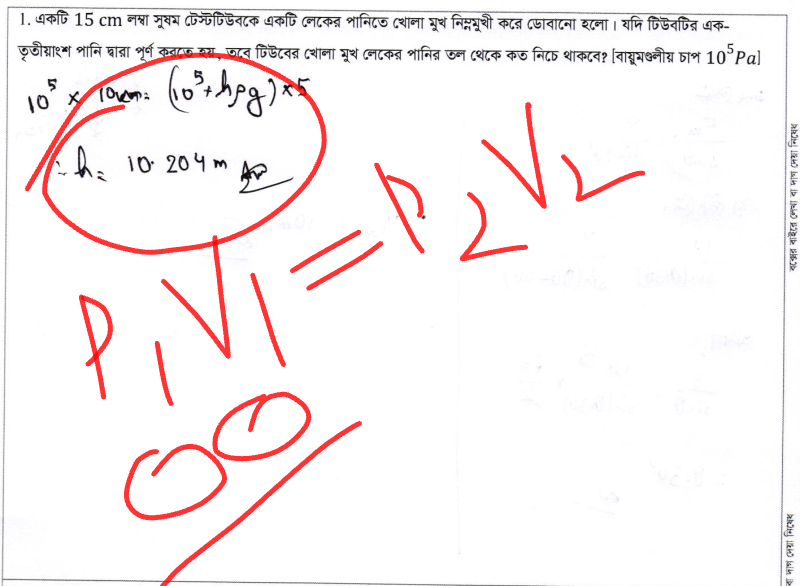 1. একটি 15 cm লম্বা সুষম টেস্টটিউবকে একটি লেকের পানিতে খোলা মুখ নিম্নমুখী করে ডোবানো হলো। যদি টিউবটির এক-
তৃতীয়াংশ পানি দ্বারা পূর্ণ করতে হয়, তবে টিউবের খোলা মুখ লেকের পানির তল থেকে কত নিচে থাকবে? [বায়ুমণ্ডলীয় চাপ 10⁵Pa]
10⁵ × 10 = (10⁵ + hρg) × 5
∴ h = 10.204 m Ans
P₁V₁ = P₂V₂
00
বক্সের বাইরে লেখা বা দাগ দেয়া নিষেধ
বা দাগ দেয়া নিষেধ